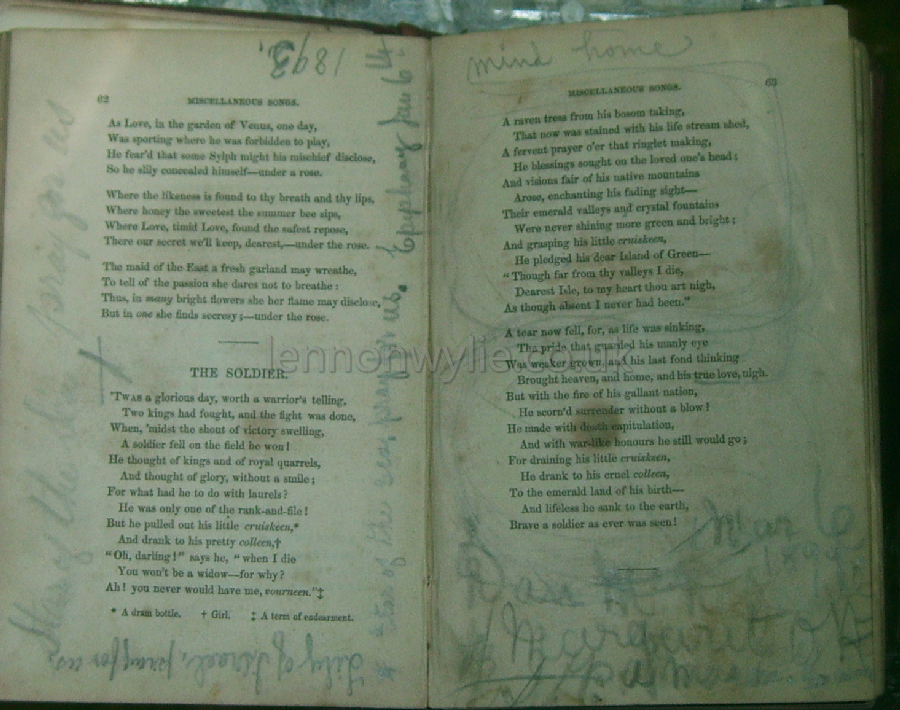 1893.
62
MISCELLANEOUS SONGS.
As Love, in the garden of Venus, one day,
Was sporting where he was forbidden to play,
He fear'd that some Sylph might his mischief disclose,
So he slily concealed himself—under a rose.
Where the likeness is found to thy breath and thy lips,
Where honey the sweetest the summer bee sips,
Where Love, timid Love, found the safest repose,
There our secret we'll keep, dearest,—under the rose.
The maid of the East a fresh garland may wreathe,
To tell of the passion she dares not to breathe:
Thus, in many bright flowers she her flame may disclose,
But in one she finds secresy;—under the rose.
THE SOLDIER.
'TWAS a glorious day, worth a warrior's telling,
Two kings had fought, and the fight was done,
When, 'midst the shout of victory swelling,
A soldier fell on the field he won!
He thought of kings and of royal quarrels,
And thought of glory, without a smile;
For what had he to do with laurels?
He was only one of the rank-and-file!
But he pulled out his little cruiskeen,*
And drank to his pretty colleen,†
"Oh, darling!" says he, "when I die
You won't be a widow—for why?
Ah! you never would have me, vourneen."‡
* A dram bottle. † Girl. ‡ A term of endearment.
Star of the Sea pray for us
Star of the sea, pray for us. Epiphany Jan 6th
Lily of Israel, pray for us.
mind home
MISCELLANEOUS SONGS.
63
A raven tress from his bosom taking,
That now was stained with his life stream shed,
A fervent prayer o'er that ringlet making,
He blessings sought on the loved one's head;
And visions fair of his native mountains
Arose, enchanting his fading sight—
Their emerald valleys and crystal fountains
Were never shining more green and bright;
And grasping his little cruiskeen,
He pledged his dear Island of Green—
"Though far from thy valleys I die,
Dearest Isle, to my heart thou art nigh,
As though absent I never had been."
A tear now fell, for, as life was sinking,
The pride that guarded his manly eye
Was weaker grown, and his last fond thinking
Brought heaven, and home, and his true love, nigh.
But with the fire of his gallant nation,
He scorn'd surrender without a blow!
He made with death capitulation,
And with war-like honours he still would go;
For draining his little cruiskeen,
He drank to his cruel colleen,
To the emerald land of his birth—
And lifeless he sank to the earth,
Brave a soldier as ever was seen!
Margaret
lennonwylie.co.uk